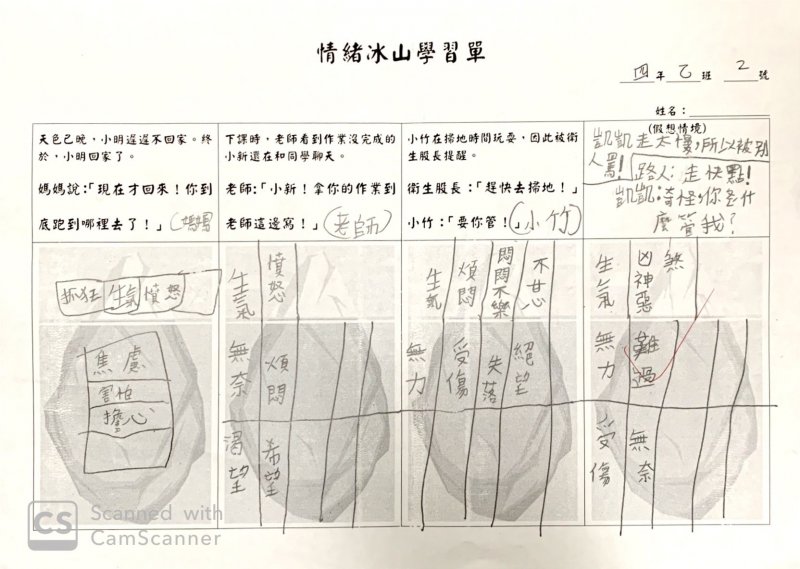 情緒冰山學習單
四年乙班 2號
姓名：
天色已晚，小明遲遲不回家。終
於，小明回家了。
媽媽說：「現在才回來！你到
底跑到哪裡去了！」(媽媽
下課時，老師看到作業沒完成的
小新還在和同學聊天。
老師：「小新！拿你的作業到
老師這邊寫！」(老師)
小竹在掃地時間玩耍，因此被衛
生股長提醒。
衛生股長：「趕快去掃地！」
小竹：「要你管！」(小竹)
(假想情境)
凱凱走太慢，所以被別
人罵！
路人：走快點！
凱凱：奇怪，你是什
麼管我？
抓狂 生氣 憤怒
焦慮
害怕
擔心
生氣
憤怒
無奈
煩悶
渴望
希望
生氣
煩悶
悶悶不樂
不甘心
無力
受傷
失落
絕望
生氣
凶神惡
煞
無力
難過
受傷
無奈
CS Scanned with
CamScanner